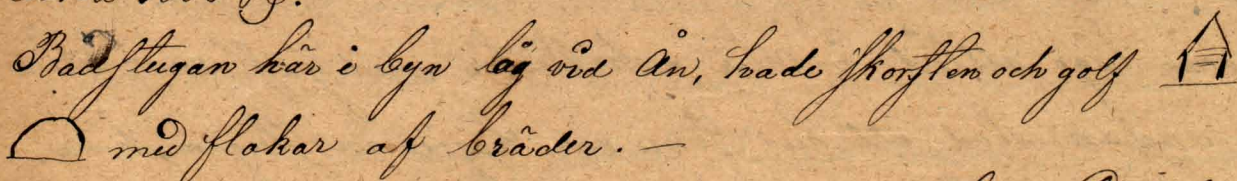 Badstugan här i byn låg vid ån, hade skorsten och golf
med flakar af bräder. —